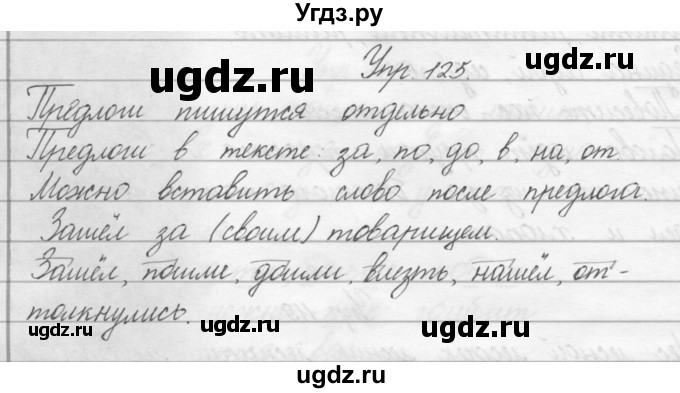 Угдз.ру
Упр. 125.
ugdz.ru ugdz.ru
Предлоги пишутся отдельно
Предлоги в тексте: за, по, до, в, на, от.
Можно вставить слово после предлога.
Зашёл за (своим) товарищем.
ugdz.ru
Зашёл, пошли, дошли, влезть, нашёл, от-
толкнулись.
ugdz.ru ugdz.ru ugdz.ru ugdz.ru
ugdz.ru